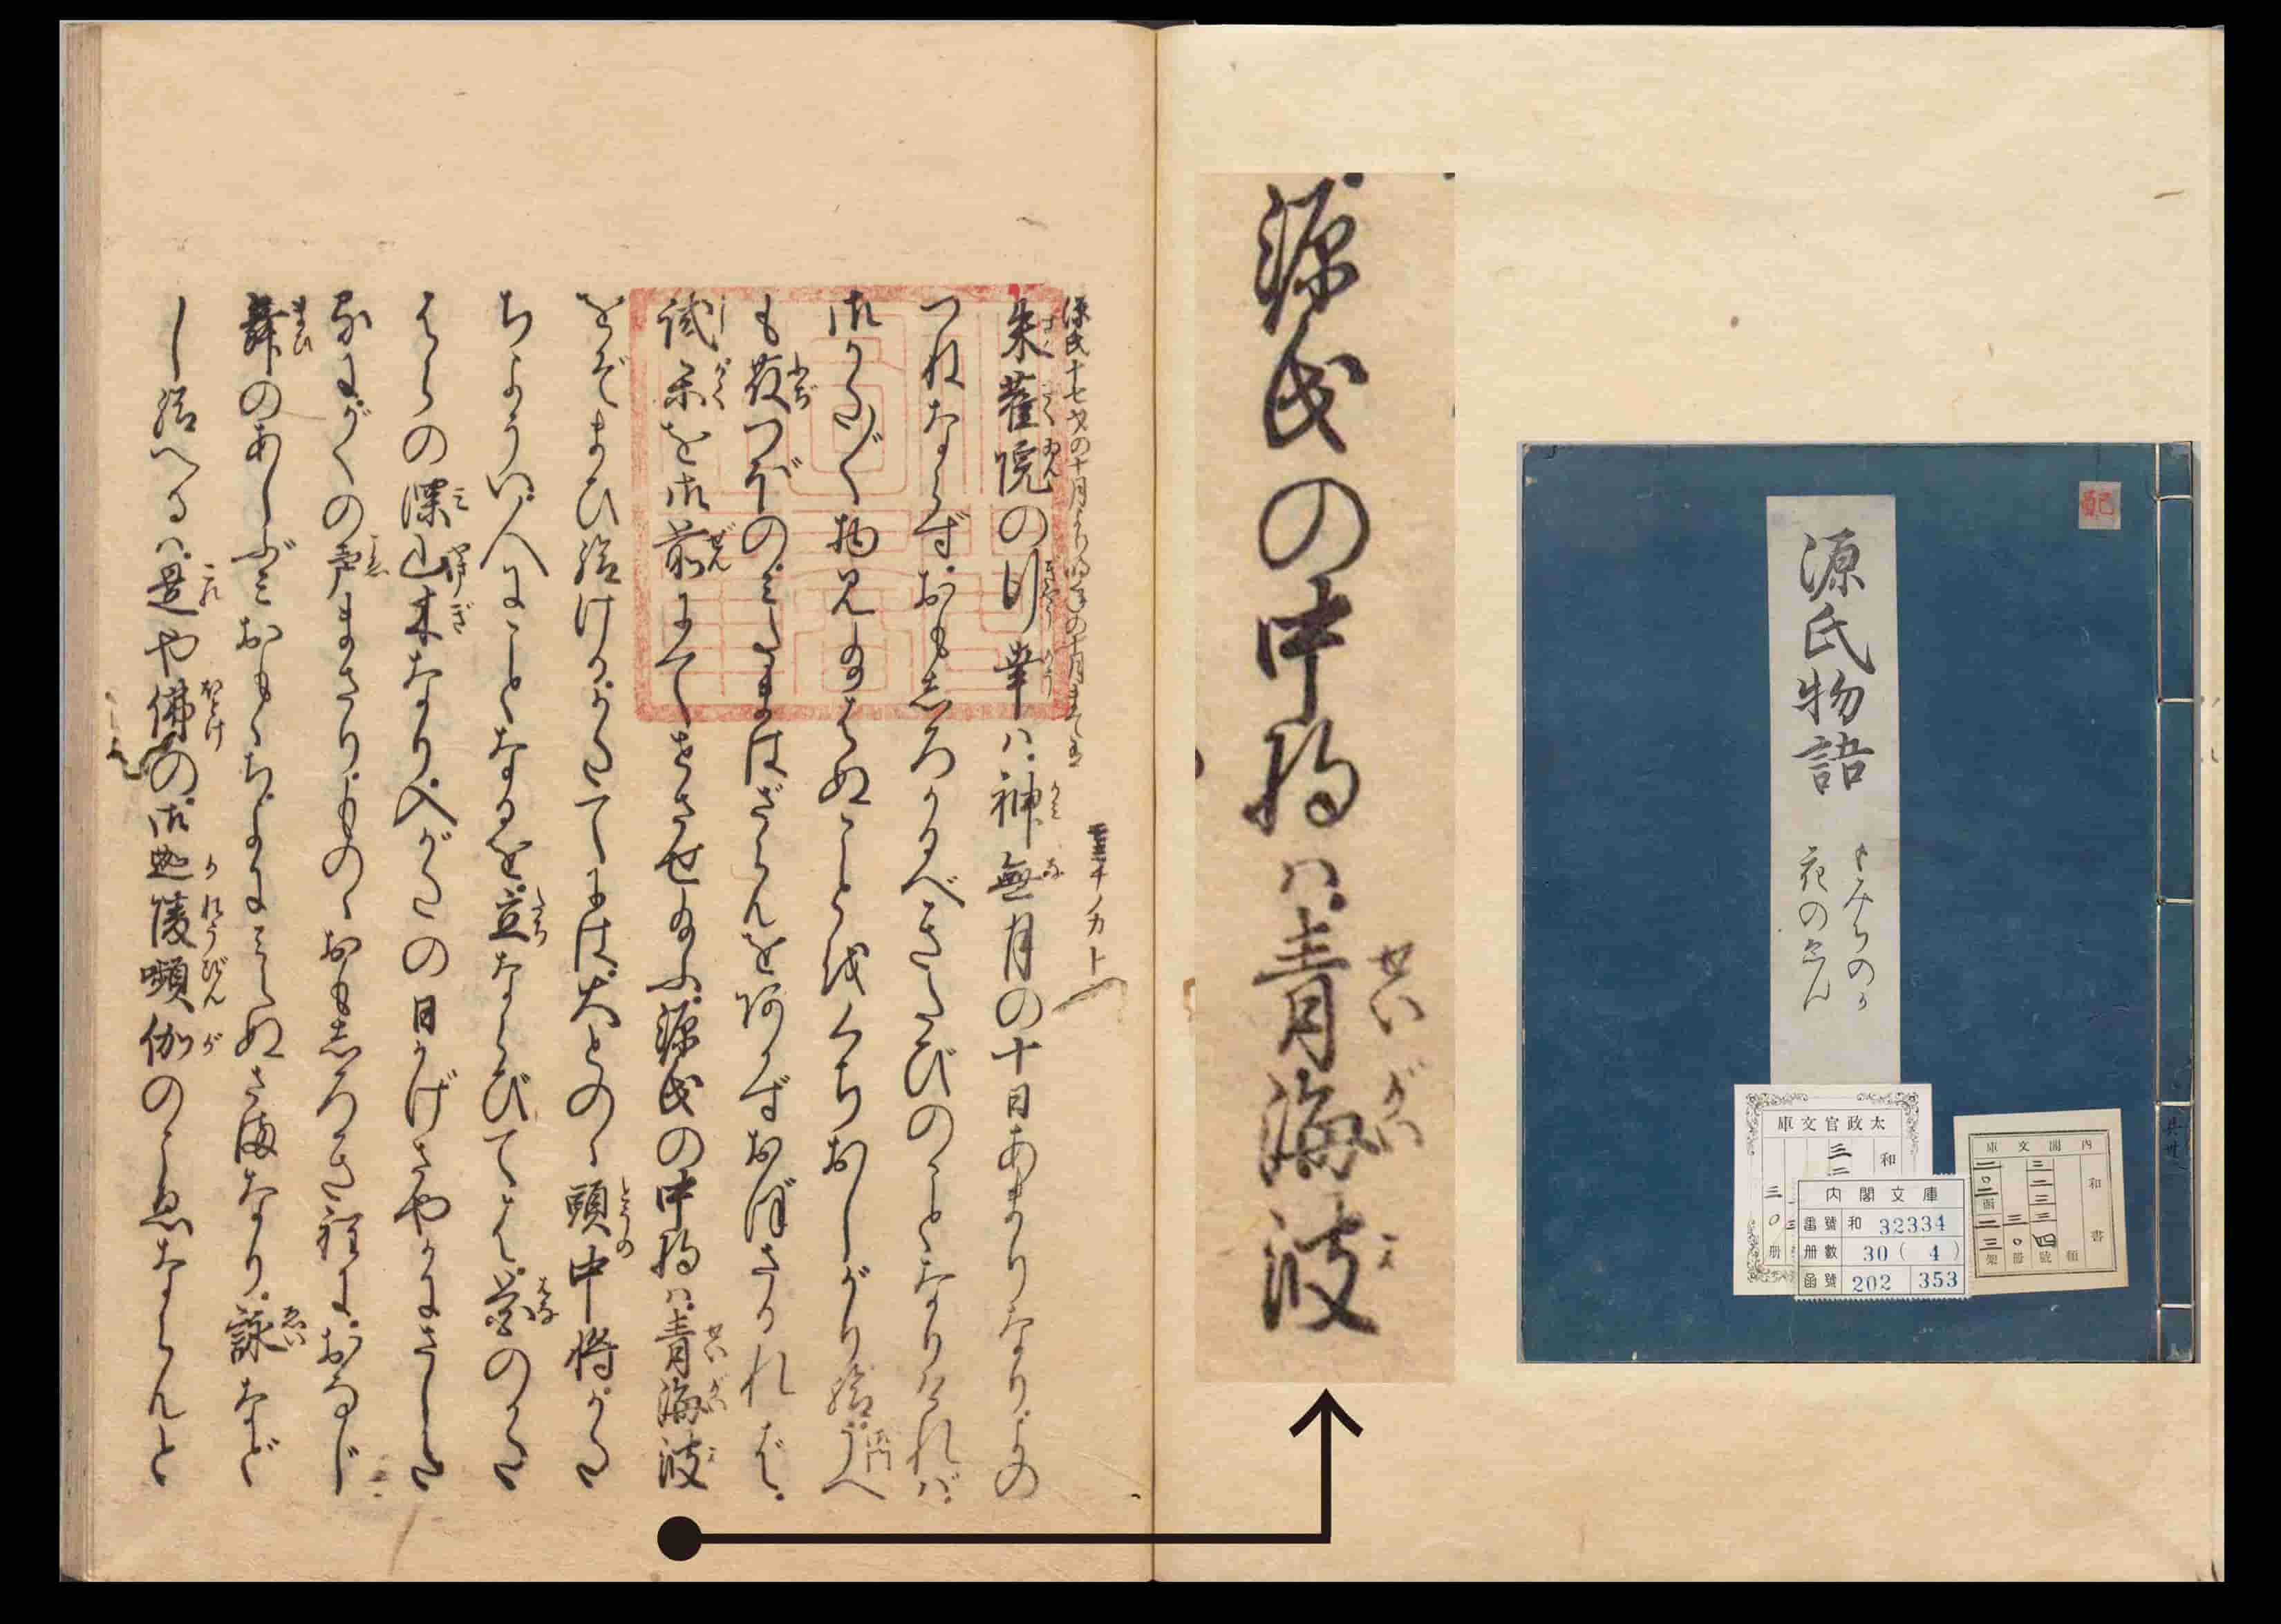 源氏十七才の十月より明年の十月まて
朱雀院の行幸ハ神無月の十日あまりなりよの
つねならずおもしろかるべきたびのことなりけれバ
御かた〴〵物見給はぬことをくちおしがり給うへ
も藤つぼのみたまはざらんをあかずおぼされば
試楽を御前にてせさせ給ふ源氏の中将ハ青海波
をぞまひ給けるかたてには大とのゝ頭中将かた
ちようい人にことなるを立ならびては花のかた
はらの深山木なり入がたの日かげさやかにさした
るにがくの声まさりものゝおもしろき程におなじ
舞のあしぶみおもゝちよにみえぬさまなり詠など
し給へるハ是や佛の御迦陵頻伽のこゑならんと
源氏の中将ハ青海波
せいがいは
源氏物語
もみちのか
花のえん
太政官文庫
和
三〇
册
内閣文庫
番號 和 32334
册數 30 ( 4 )
函號 202 353
内閣文庫
和書
類
三二三三四號
三〇册
二〇二函
二三架